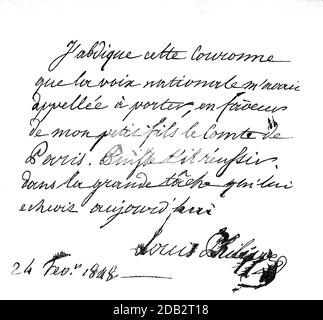 J'abdique cette Couronne
que la voix nationale m'avait
appellée à porter, en faveur
de mon petit fils le Comte de
Paris. Puisse-t-il réussir
dans la grande tâche qui lui
echoit aujourd'hui
Louis Philippe
24 Fev.r 1848
alamy
Image ID: 2DB2T18
www.alamy.com